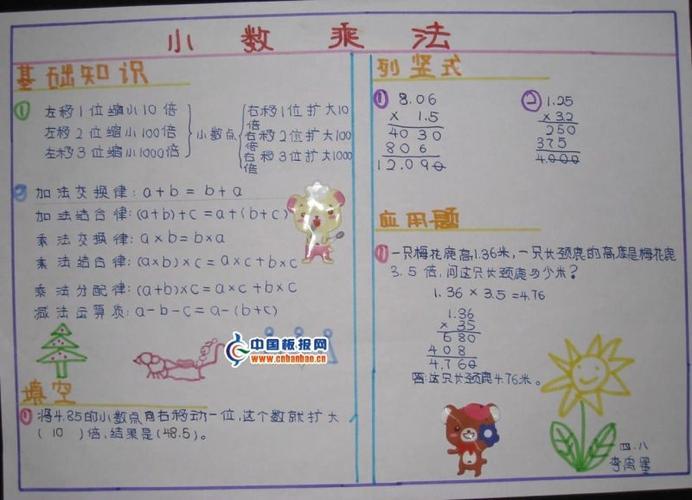 小数乘法
基础知识
①
左移1位缩小10倍
左移2位缩小100倍
左移3位缩小1000倍
小数点
右移1位扩大10倍
右移2位扩大100倍
右移3位扩大1000
② 加法交换律:a+b=b+a
加法结合律:(a+b)+c=a+(b+c)
乘法交换律:a×b=b×a
乘法结合律:(a×b)×c=a×c+b×c
乘法分配律:(a+b)×c=a×c+b×c
减法运算质:a-b-c=a-(b+c)
中国板报网
www.cnbanbao.cn
填空
① 将4.85的小数点向右移动一位,这个数就扩大
(10)倍,结果是(48.5)。
列竖式
① 8.06
× 1.5
4030
806
12.090
② 1.25
×32
250
375
4.000
应用题
① 一只梅花鹿高1.36米,一只长颈鹿的高度是梅花鹿
3.5倍,问这只长颈鹿多少米?
1.36×3.5=4.76
1.36
× 35
680
408
4.760
答:这只长颈鹿4.76米。
四.八